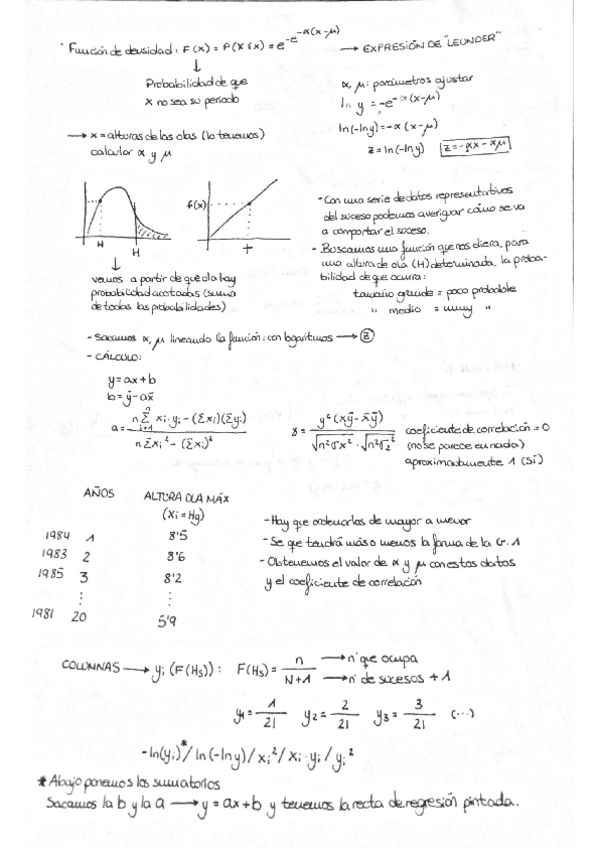 · Función de densidad: F(x) = P(X≤x) = e^-e^-α(x-μ) → EXPRESIÓN DE "LEUNDER"
↓
Probabilidad de que
X no sea su periodo
α, μ: parámetros ajustar
ln y = -e^-α(x-μ)
ln(-ln y) = -α(x-μ)
z = ln(-ln y) z = -αx - αμ
→ x = alturas de las olas (lo tenemos)
calcular α y μ
H H
f(x)
- Con una serie de datos representativos
del suceso podemos averiguar cómo se va
a comportar el suceso.
- Buscamos una función que nos diera, para
una altura de ola (H) determinada, la proba-
bilidad de que ocurra:
tamaño grande = poco probable
" medio = muy "
↓
vemos a partir de qué ola hay
probabilidad acotadas (suma
de todas las probabilidades)
- Sacamos α, μ lineando la función: con logaritmos → Z
- CÁLCULO:
y = ax + b
b = ȳ - ax̄
a = n Σ xi·yi - (Σxi)(Σyi) / n Σxi² - (Σxi)²
i=1
γ = y²(xȳ - x̄ȳ) / √n²σx² · √n²σz²
coeficiente de correlación = 0
(no se parece en nada)
aproximadamente 1 (sí)
AÑOS ALTURA OLA MÁX
(Xi = Hg)
1984 1 8'5
1983 2 8'6
1985 3 8'2
⋮ ⋮
1981 20 5'9
- Hay que ordenarlas de mayor a menor
- Se que tendrá más o menos la forma de la G.1
- Obtenemos el valor de α y μ con estos datos
y el coeficiente de correlación
COLUMNAS → yi (F(Hs)): F(Hs) = n / N+1 → nº que ocupa
→ nº de sucesos + 1
y1 = 1/21 y2 = 2/21 y3 = 3/21 (...)
-ln(yi)* / ln(-ln y) / xi² / xi·yi / yi²
* Abajo ponemos los sumatorios
Sacamos la b y la a → y = ax + b y tenemos la recta de regresión pintada.